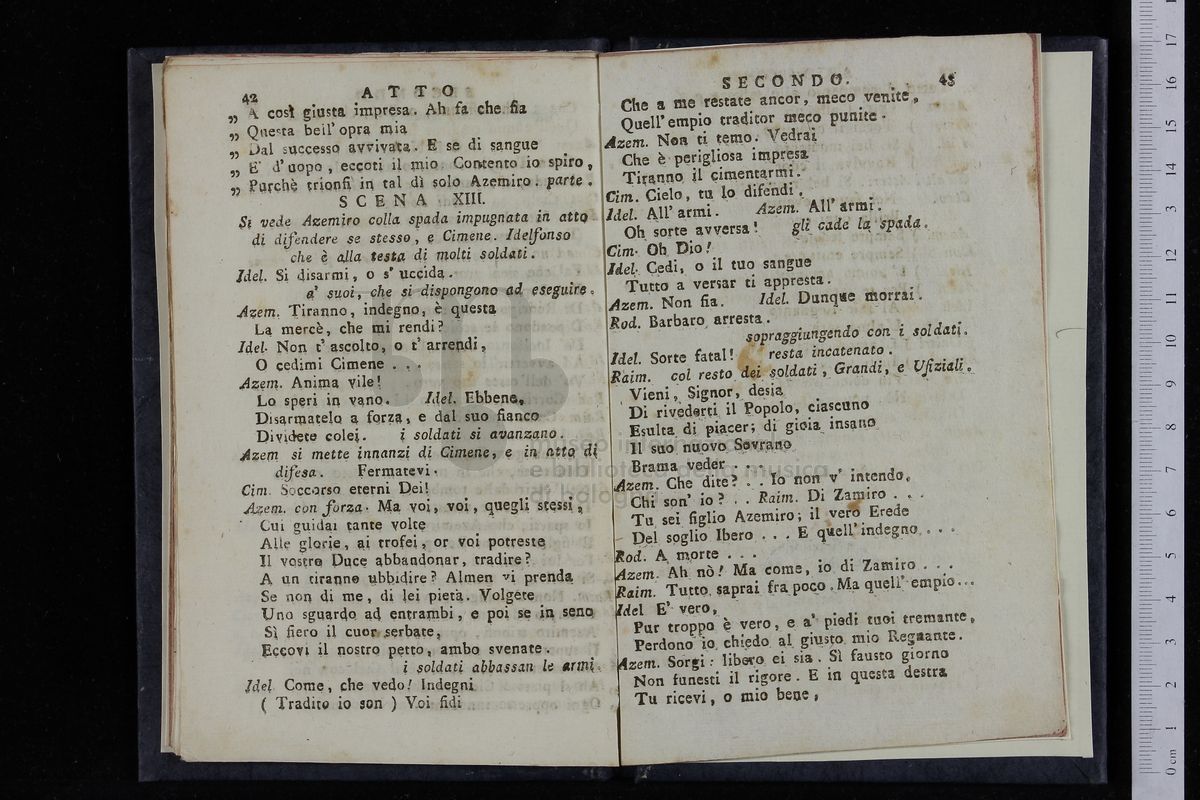 42
A T T O
„ A così giusta impresa. Ah fa che fia
„ Questa bell' opra mia
„ Dal successo avvivata. E se di sangue
„ E' d' uopo, eccoti il mio. Contento io spiro,
„ Purchè trionfi in tal dì solo Azemiro. parte.
SCENA XIII.
Si vede Azemiro colla spada impugnata in atto
di difendere se stesso, e Cimene. Idelfonso
che è alla testa di molti soldati.
Idel. Si disarmi, o s' uccida.
a' suoi, che si dispongono ad eseguire.
Azem. Tiranno, indegno, è questa
La mercè, che mi rendi?
Idel. Non t' ascolto, o t' arrendi,
O cedimi Cimene . . .
Azem. Anima vile!
Lo speri in vano. Idel. Ebbene,
Disarmatelo a forza, e dal suo fianco
Dividete colei. i soldati si avanzano.
Azem si mette innanzi di Cimene, e in atto di
difesa. Fermatevi.
Cim. Soccorso eterni Dei!
Azem. con forza. Ma voi, voi, quegli stessi,
Cui guidai tante volte
Alle glorie, ai trofei, or voi potreste
Il vostro Duce abbandonar, tradire?
A un tiranno ubbidire? Almen vi prenda
Se non di me, di lei pietà. Volgete
Uno sguardo ad entrambi, e poi se in seno
Sì fiero il cuor serbate,
Eccovi il nostro petto, ambo svenate.
i soldati abbassan le armi.
Idel Come, che vedo! Indegni
( Tradito io son ) Voi fidi
SECONDO.
43
Che a me restate ancor, meco venite,
Quell' empio traditor meco punite.
Azem. Non ti temo. Vedrai
Che è perigliosa impresa
Tiranno il cimentarmi.
Cim. Cielo, tu lo difendi.
Idel. All' armi. Azem. All' armi.
Oh sorte avversa! gli cade la spada.
Cim. Oh Dio!
Idel. Cedi, o il tuo sangue
Tutto a versar ti appresta.
Azem. Non fia. Idel. Dunque morrai.
Rod. Barbaro arresta.
sopraggiungendo con i soldati.
Idel. Sorte fatal! resta incatenato.
Raim. col resto dei soldati, Grandi, e Ufiziali.
Vieni, Signor, desia
Di rivederti il Popolo, ciascuno
Esulta di piacer; di gioia insano
Il suo nuovo Sovrano
Brama veder . . .
Azem. Che dite? . . Io non v' intendo.
Chi son' io? . . Raim. Di Zamiro . . .
Tu sei figlio Azemiro; il vero Erede
Del soglio Ibero . . . E quell' indegno . . .
Rod. A morte . . .
Azem. Ah nò! Ma come, io di Zamiro . . .
Raim. Tutto saprai fra poco. Ma quell' empio...
Idel E' vero,
Pur troppo è vero, e a' piedi tuoi tremante,
Perdono io chiedo al giusto mio Regnante.
Azem. Sorgi: libero ei sia. Sì fausto giorno
Non funesti il rigore. E in questa destra
Tu ricevi, o mio bene,
museo internazionale
e biblioteca della musica
di bologna
0 cm 1 2 3 4 5 6 7 8 9 10 11 12 13 14 15 16 17